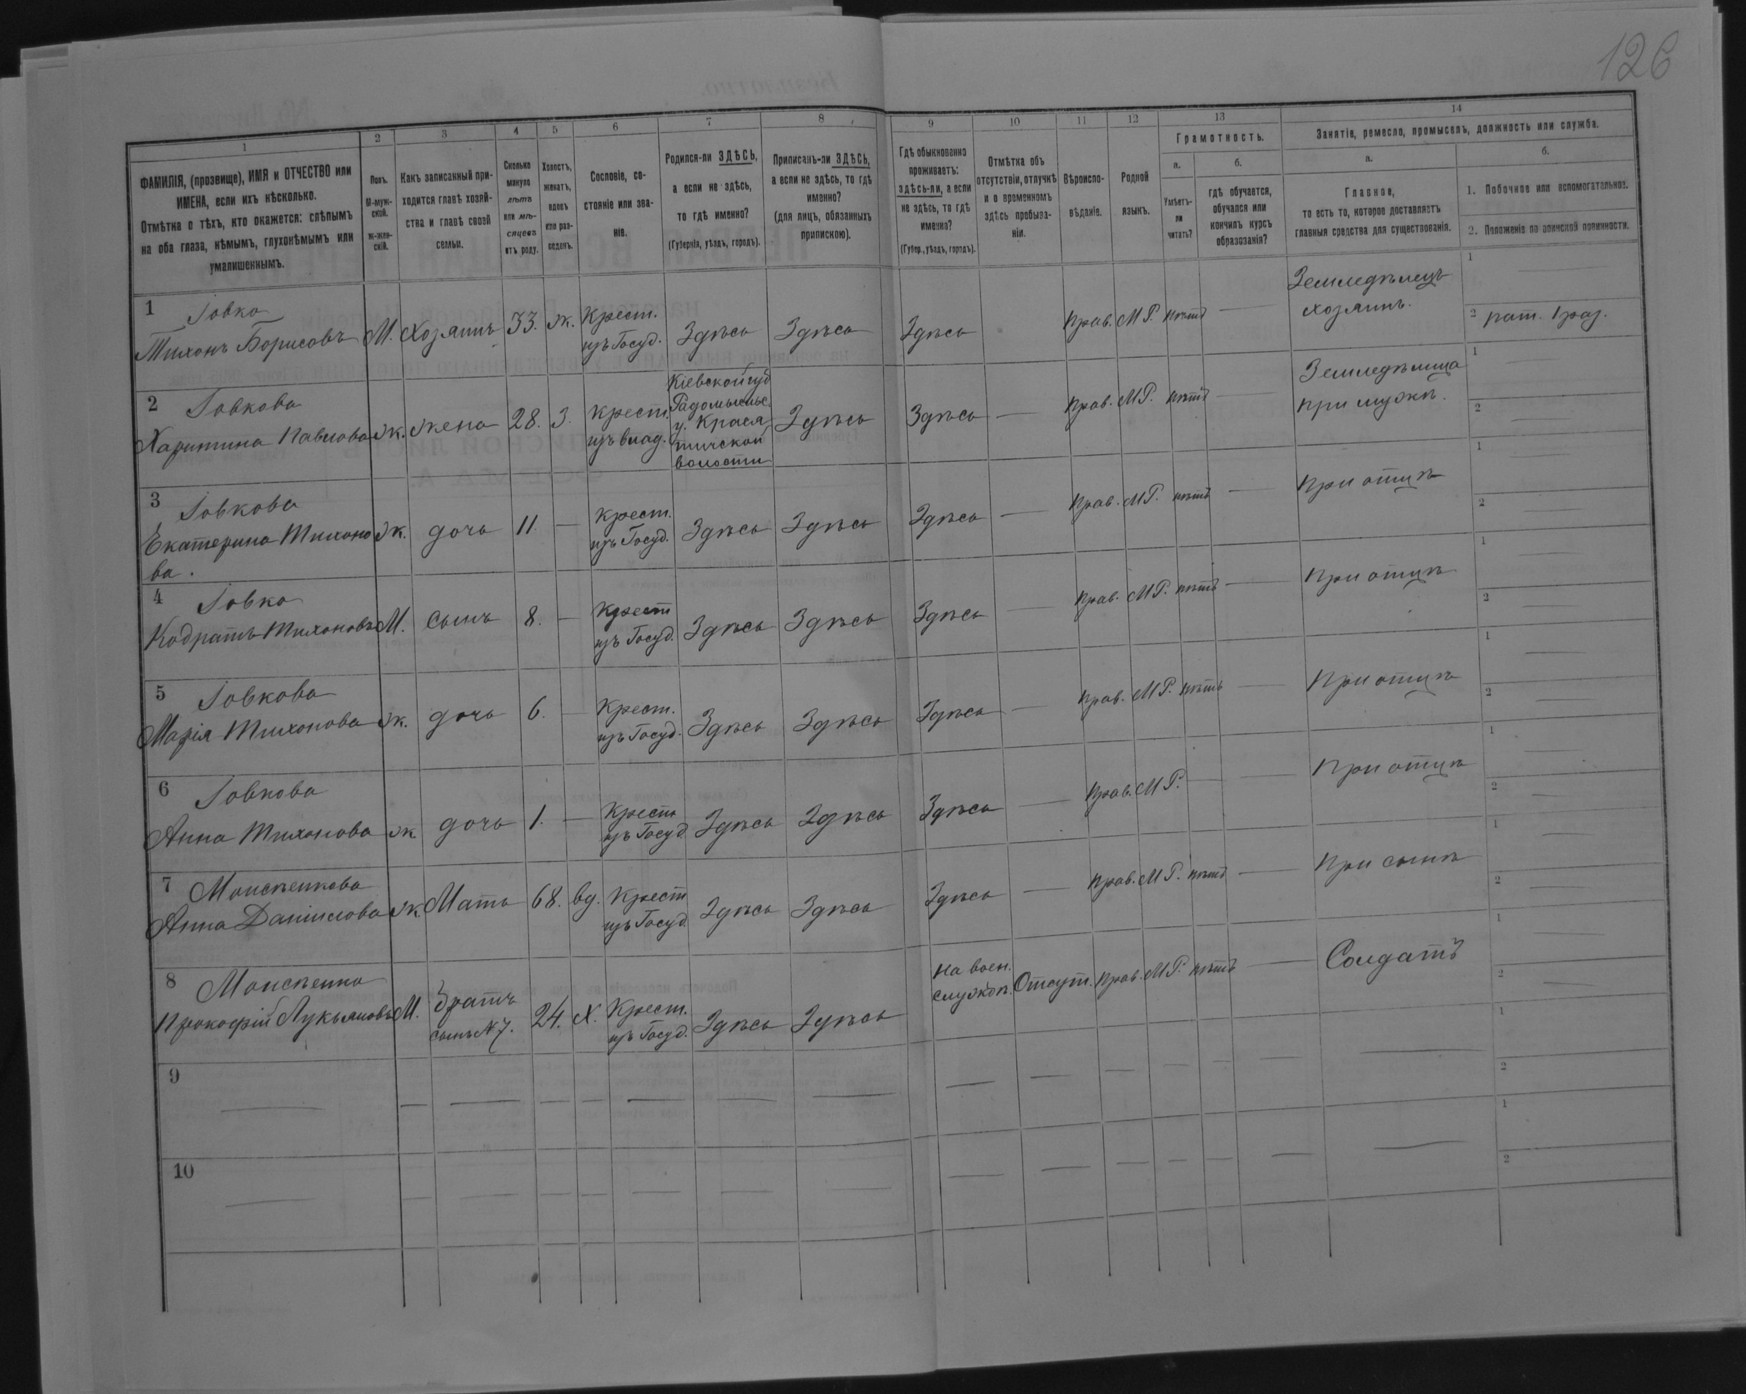 126
1
2
3
4
5
6
7
8
9
10
11
12
13
14
ФАМИЛІЯ, (прозвище), ИМЯ и ОТЧЕСТВО или
ИМЕНА, если ихъ нѣсколько.
Отмѣтка о тѣхъ, кто окажется: слѣпымъ
на оба глаза, нѣмымъ, глухонѣмымъ или
умалишеннымъ.
Полъ.
М-муж-
ской.
Ж-жен-
скій.
Какъ записанный при-
ходится главѣ хозяй-
ства и главѣ своей
семьи.
Сколько
минуло
лѣтъ
или мѣ-
сяцевъ
отъ роду.
Холостъ,
женатъ,
вдовъ
или раз-
веденъ.
Сословіе, со-
стояніе или зва-
ніе.
Родился-ли ЗДѢСЬ,
а если не здѣсь,
то гдѣ именно?
(Губернія, уѣздъ, городъ).
Приписанъ-ли ЗДѢСЬ,
а если не здѣсь, то гдѣ
именно?
(для лицъ, обязанныхъ
припискою).
Гдѣ обыкновенно
проживаетъ:
здѣсь-ли, а если
не здѣсь, то гдѣ
именно?
(Губер., уѣздъ, городъ).
Отмѣтка объ
отсутствіи, отлучкѣ
и о временномъ
здѣсь пребыва-
ніи.
Вѣроиспо-
вѣданіе.
Родной
языкъ.
Грамотность.
а.
Умѣетъ-
ли
читать?
б.
гдѣ обучается,
обучался или
кончилъ курсъ
образованія?
Занятіе, ремесло, промыселъ, должность или служба.
а.
Главное,
то есть то, которое доставляетъ
главныя средства для существованія.
б.
1. Побочное или вспомогательное.
2. Положеніе по воинской повинности.
1 Говко
Тихонъ Борисовъ М. Хозяинъ 33. ж. Крест.
изъ Госуд. Здѣсь Здѣсь Здѣсь Прав. М.Р. нѣтъ — Земледѣлецъ
хозяинъ.
1
2 рат. 1 раз.
2 Говкова
Харитина Павлова Ж. жена 28. З. Крест.
изъ влад. Кіевской губ
Радомысльс.
у. Крася
тичской
волости Здѣсь Здѣсь — Прав. М.Р. нѣтъ — Земледѣлица
при мужѣ.
1
2
3 Говкова
Екатерина Тихоно
ва. Ж. дочь 11. — Крест.
изъ Госуд. Здѣсь Здѣсь Здѣсь — Прав. М.Р. нѣтъ — При отцѣ
1
2
4 Говко
Кодратъ Тихоновъ М. сынъ 8. — Крест
изъ Госуд. Здѣсь Здѣсь Здѣсь — Прав. М.Р. нѣтъ — При отцѣ
1
2
5 Говкова
Марія Тихонова Ж. дочь 6. — Крест.
изъ Госуд. Здѣсь Здѣсь Здѣсь — Прав. М.Р. нѣтъ — При отцѣ
1
2
6 Говкова
Анна Тихонова Ж дочь 1. — Крест
изъ Госуд Здѣсь Здѣсь Здѣсь — Прав. М.Р. — — При отцѣ
1
2
7 Моисѣенкова
Анна Данилова Ж Мать 68. вд. Крест
изъ Госуд Здѣсь Здѣсь Здѣсь — Прав. М.Р. нѣтъ — При сынѣ
1
2
8 Моисѣенко
Прокофій Лукьяновъ М. Братъ
сынъ №7. 24. Х. Крест.
изъ Госуд. Здѣсь Здѣсь На воен.
службѣ. Отсут. Прав. М.Р. нѣтъ — Солдатъ
1
2
9
1
2
10
1
2